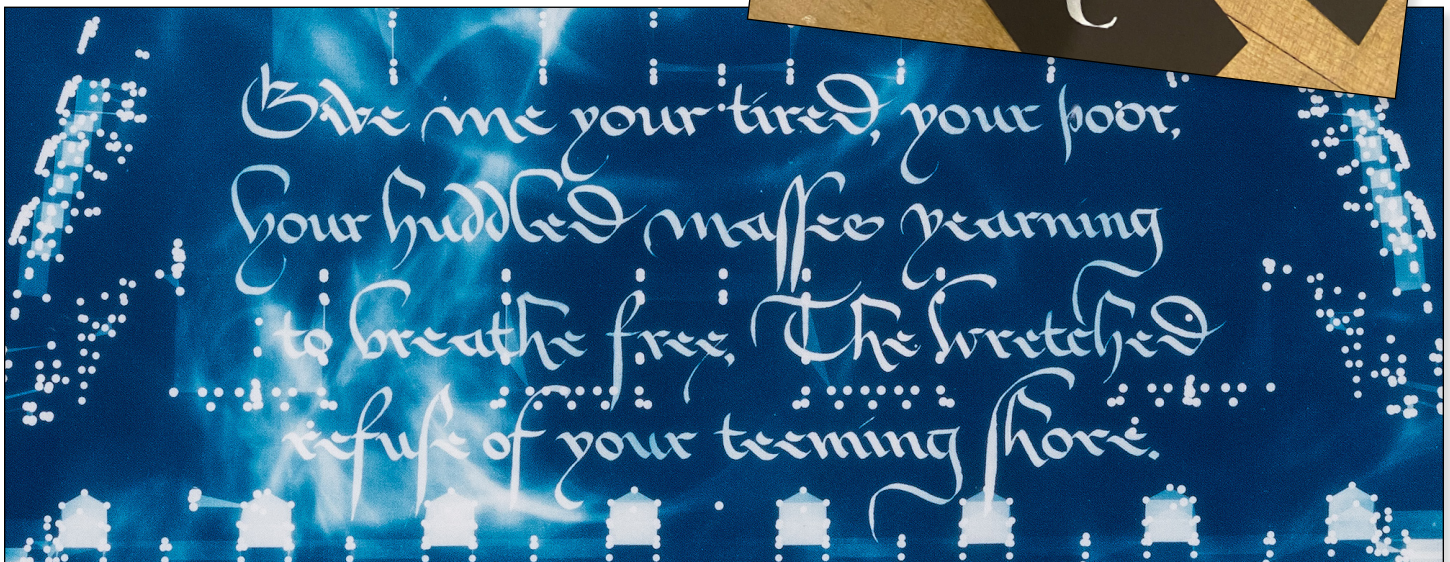 Give me your tired, your poor,
your huddled maſſes yearning
to breathe free, The wretched
refuſe of your teeming ſhore.